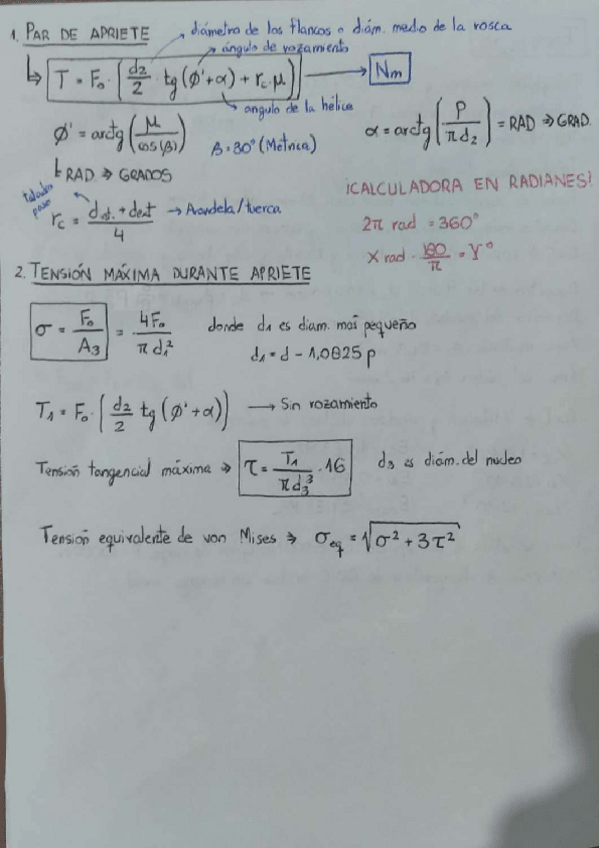 1. PAR DE APRIETE
diámetro de los flancos o diám. medio de la rosca
ángulo de rozamiento
T = F₀ · [d₂/2 · tg(ø' + α) + r_c · μ] → Nm
angulo de la hélice
ø' = arctg(μ / cos(β))
β = 30° (Métrica)
α = arctg[P / πd₂] = RAD ⇒ GRAD.
RAD ⇒ GRADOS
¡CALCULADORA EN RADIANES!
taladro paso
r_c = (d_int. + d_ext) / 4 → Arandela/tuerca
2π rad = 360°
X rad · 180/π = Y°
2. TENSIÓN MÁXIMA DURANTE APRIETE
σ = F₀/A₃ = 4F₀/πd₁²
donde d₁ es diam. mas pequeño
d₁ = d - 1,0825 p
T₁ = F₀ · [d₂/2 tg(ø' + α)] → Sin rozamiento
Tensión tangencial máxima ⇒ τ = T₁/πd₃³ · 16
d₃ es diám. del nucleo
Tensión equivalente de von Mises ⇒ σ_eq = √(σ² + 3τ²)